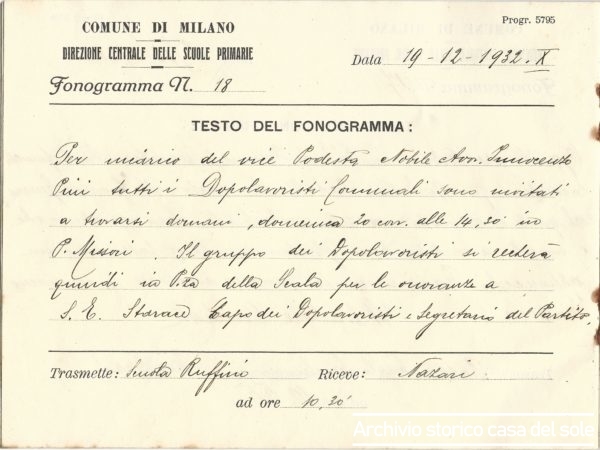 Progr. 5795
COMUNE DI MILANO
DIREZIONE CENTRALE DELLE SCUOLE PRIMARIE
Data 19-12-1932.X
Fonogramma N. 18
TESTO DEL FONOGRAMMA:
Per incarico del vice Podestà Nobile Avv. Innocenzo
Pini tutti i Dopolavoristi Comunali sono invitati
a trovarsi domani, domenica 20 corr. alle 14,30' in
P. Missori. Il gruppo dei Dopolavoristi si recherà
quindi in P.za della Scala per le onoranze a
S. E. Starace Capo dei Dopolavoristi e Segretario del Partito.
Trasmette: Scuola Ruffini Riceve: Nazari
ad ore 10,30'
Archivio storico casa del sole